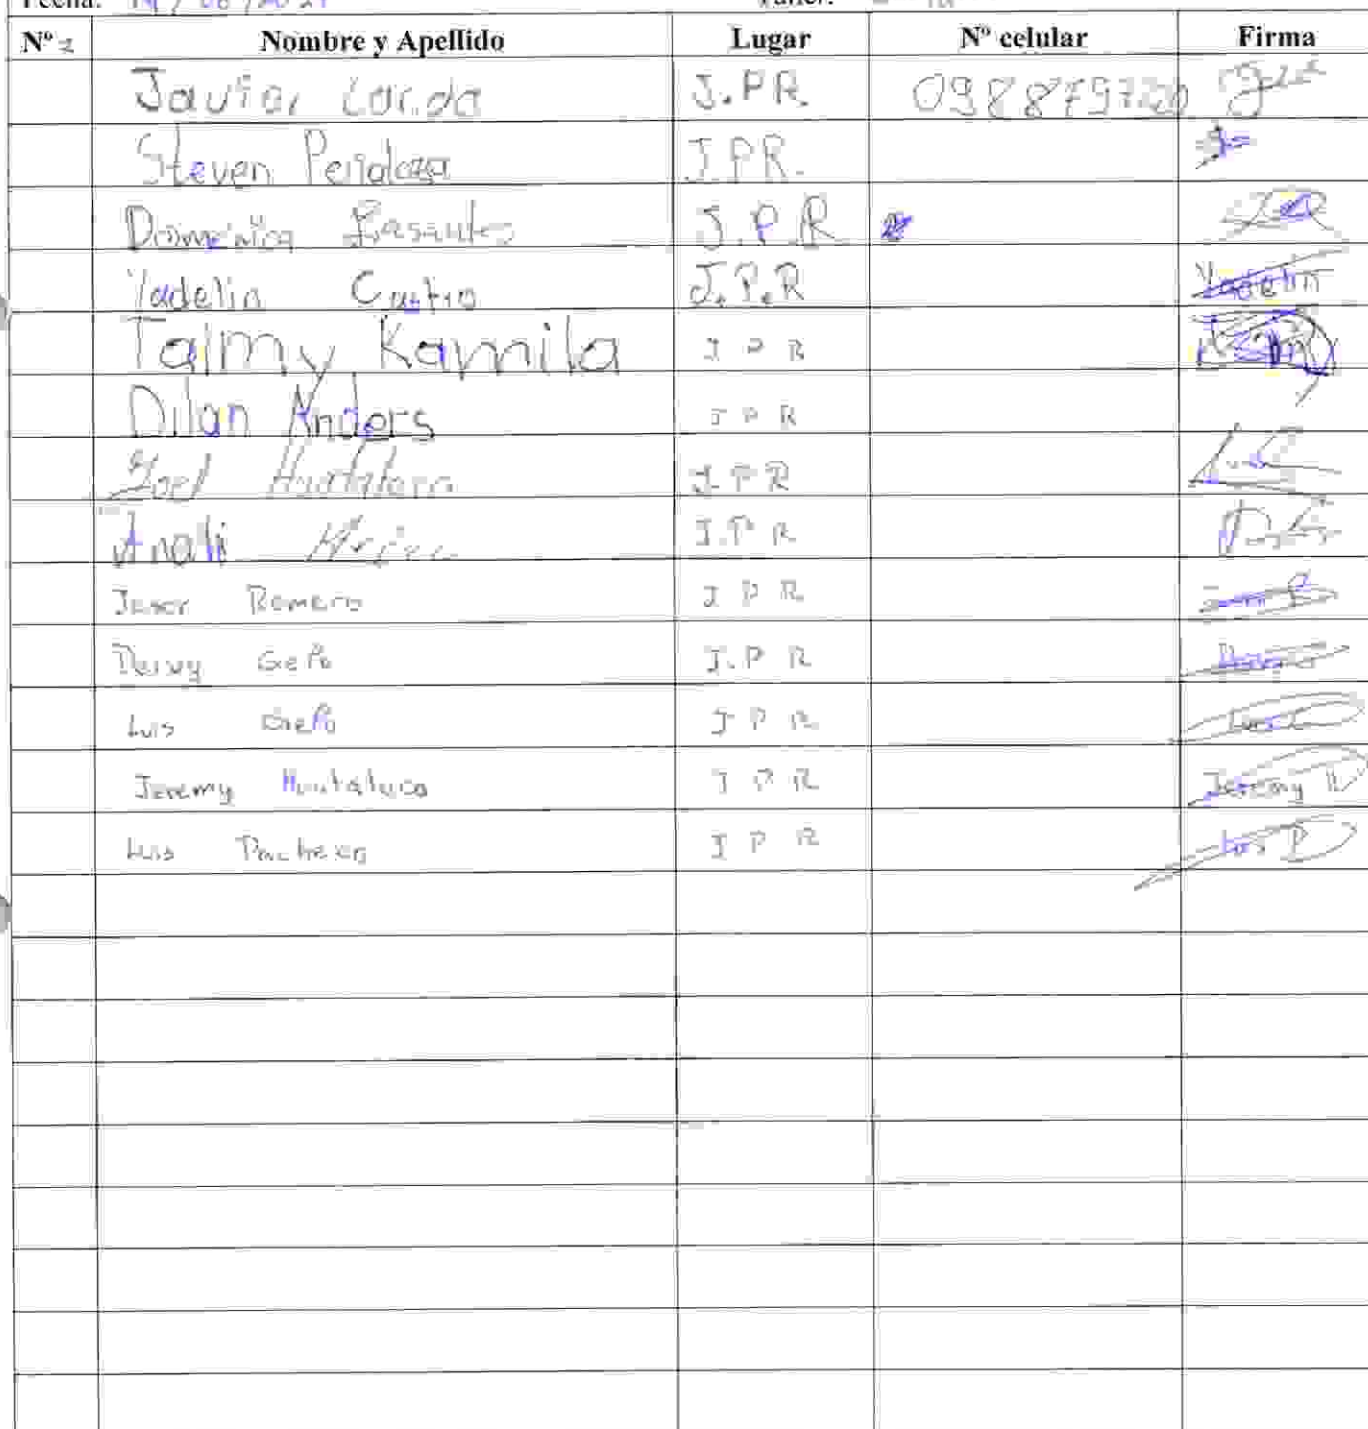 Fecha:
Nº Nombre y Apellido Lugar Nº celular Firma
Javier J.PR. 0988797220
Steven Peñaloza J.P.R.
Domenica Basantes J.P.R
Yadelin Castro J.P.R Yadelin
Taimy Kamila J P R
Dilan Anders J P R
Joel J P R
Anali J.P R
Romero J P R
Deisy Grefa J.P R
Luis Grefa J P R Luis
Jeremy Huatatoca J P R Jeremy
Luis Pacheco J P R Luis P